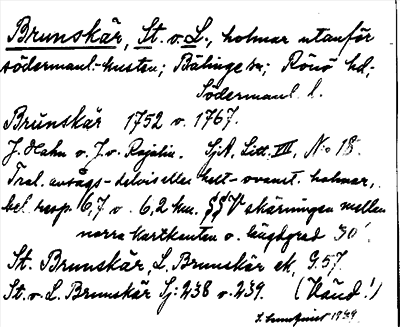 Brunskär, St. o. L., holmar utanför
södermanl.-kusten; Bälinge sn; Rönö hd;
Södermanl. l.
Brunskär 1752 o. 1767.
J. Hahn o. J. v. Rajalin. SjA. Litt. III, No 18.
Tral. avlägs- delvis eller helt- ovanst. holmar,
bel. resp. 6,7 o. 6,2 km. skärningen mellan
norra kartkanten o. längdgrad 30'.
St. Brunskär, L. Brunskär ek. G.57.
St. o. L. Brunskär Sj: 238 o. 239. (Känd!)
1939